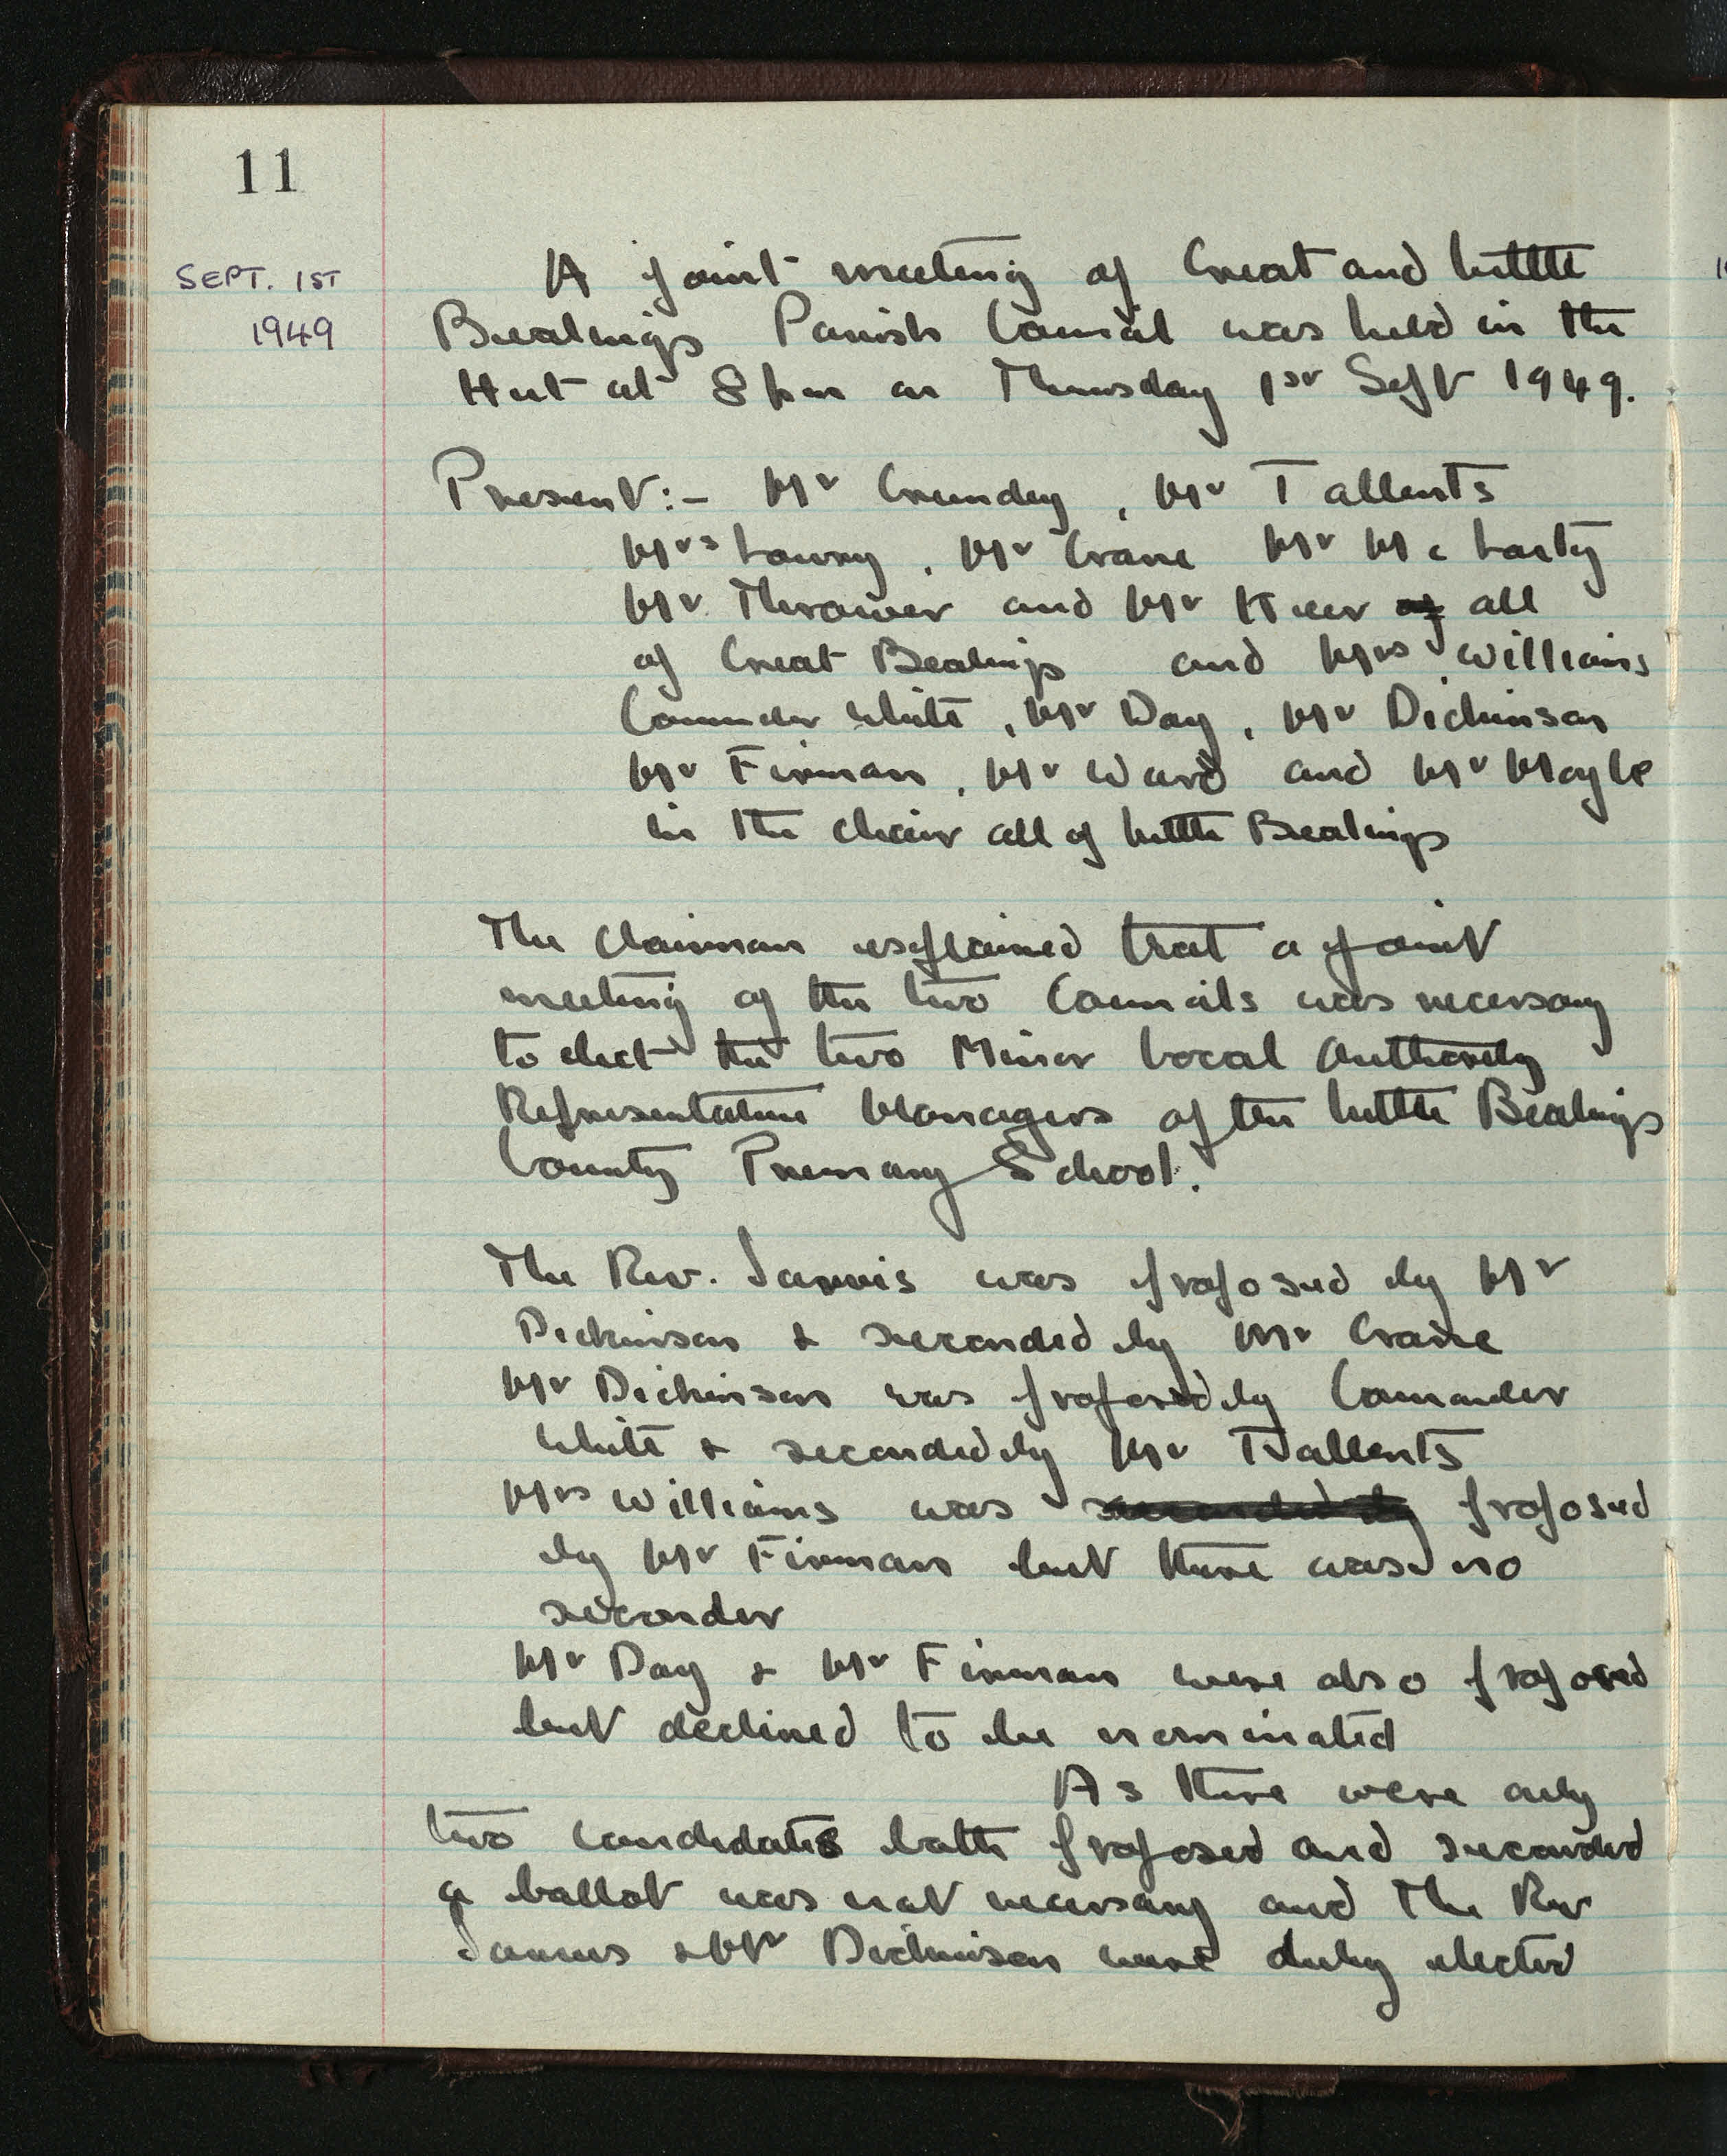 11
SEPT. 1ST
1949
A joint meeting of Great and Little
Bealings Parish Council was held in the
Hut at 8 pm on Thursday 1st Sept 1949.
Present:- Mr Grundey, Mr Tallents
Mrs Lowry, Mr Crane Mr Mc Larty
Mr Thrower and Mr Keer of all
of Great Bealings and Mrs Williams
Commder White, Mr Day, Mr Dickinson
Mr Firman, Mr Ward and Mr Mayle
in the chair all of Little Bealings
The Chairman explained that a joint
meeting of the two Councils was necessary
to elect the two Minor Local Authority
Representative Managers of the Little Bealings
County Primary School.
The Rev. Jarvis was proposed by Mr
Dickinson & seconded by Mr Crane
Mr Dickinson was proposed by Commander
White & seconded by Mr Tallents
Mrs Williams was seconded by proposed
by Mr Firman but there was no
seconder
Mr Day & Mr Firman were also proposed
but declined to be nominated
As there were only
two candidates both proposed and seconded
a ballot was not necessary and The Rev
Jarvis & Mr Dickinson were duly elected